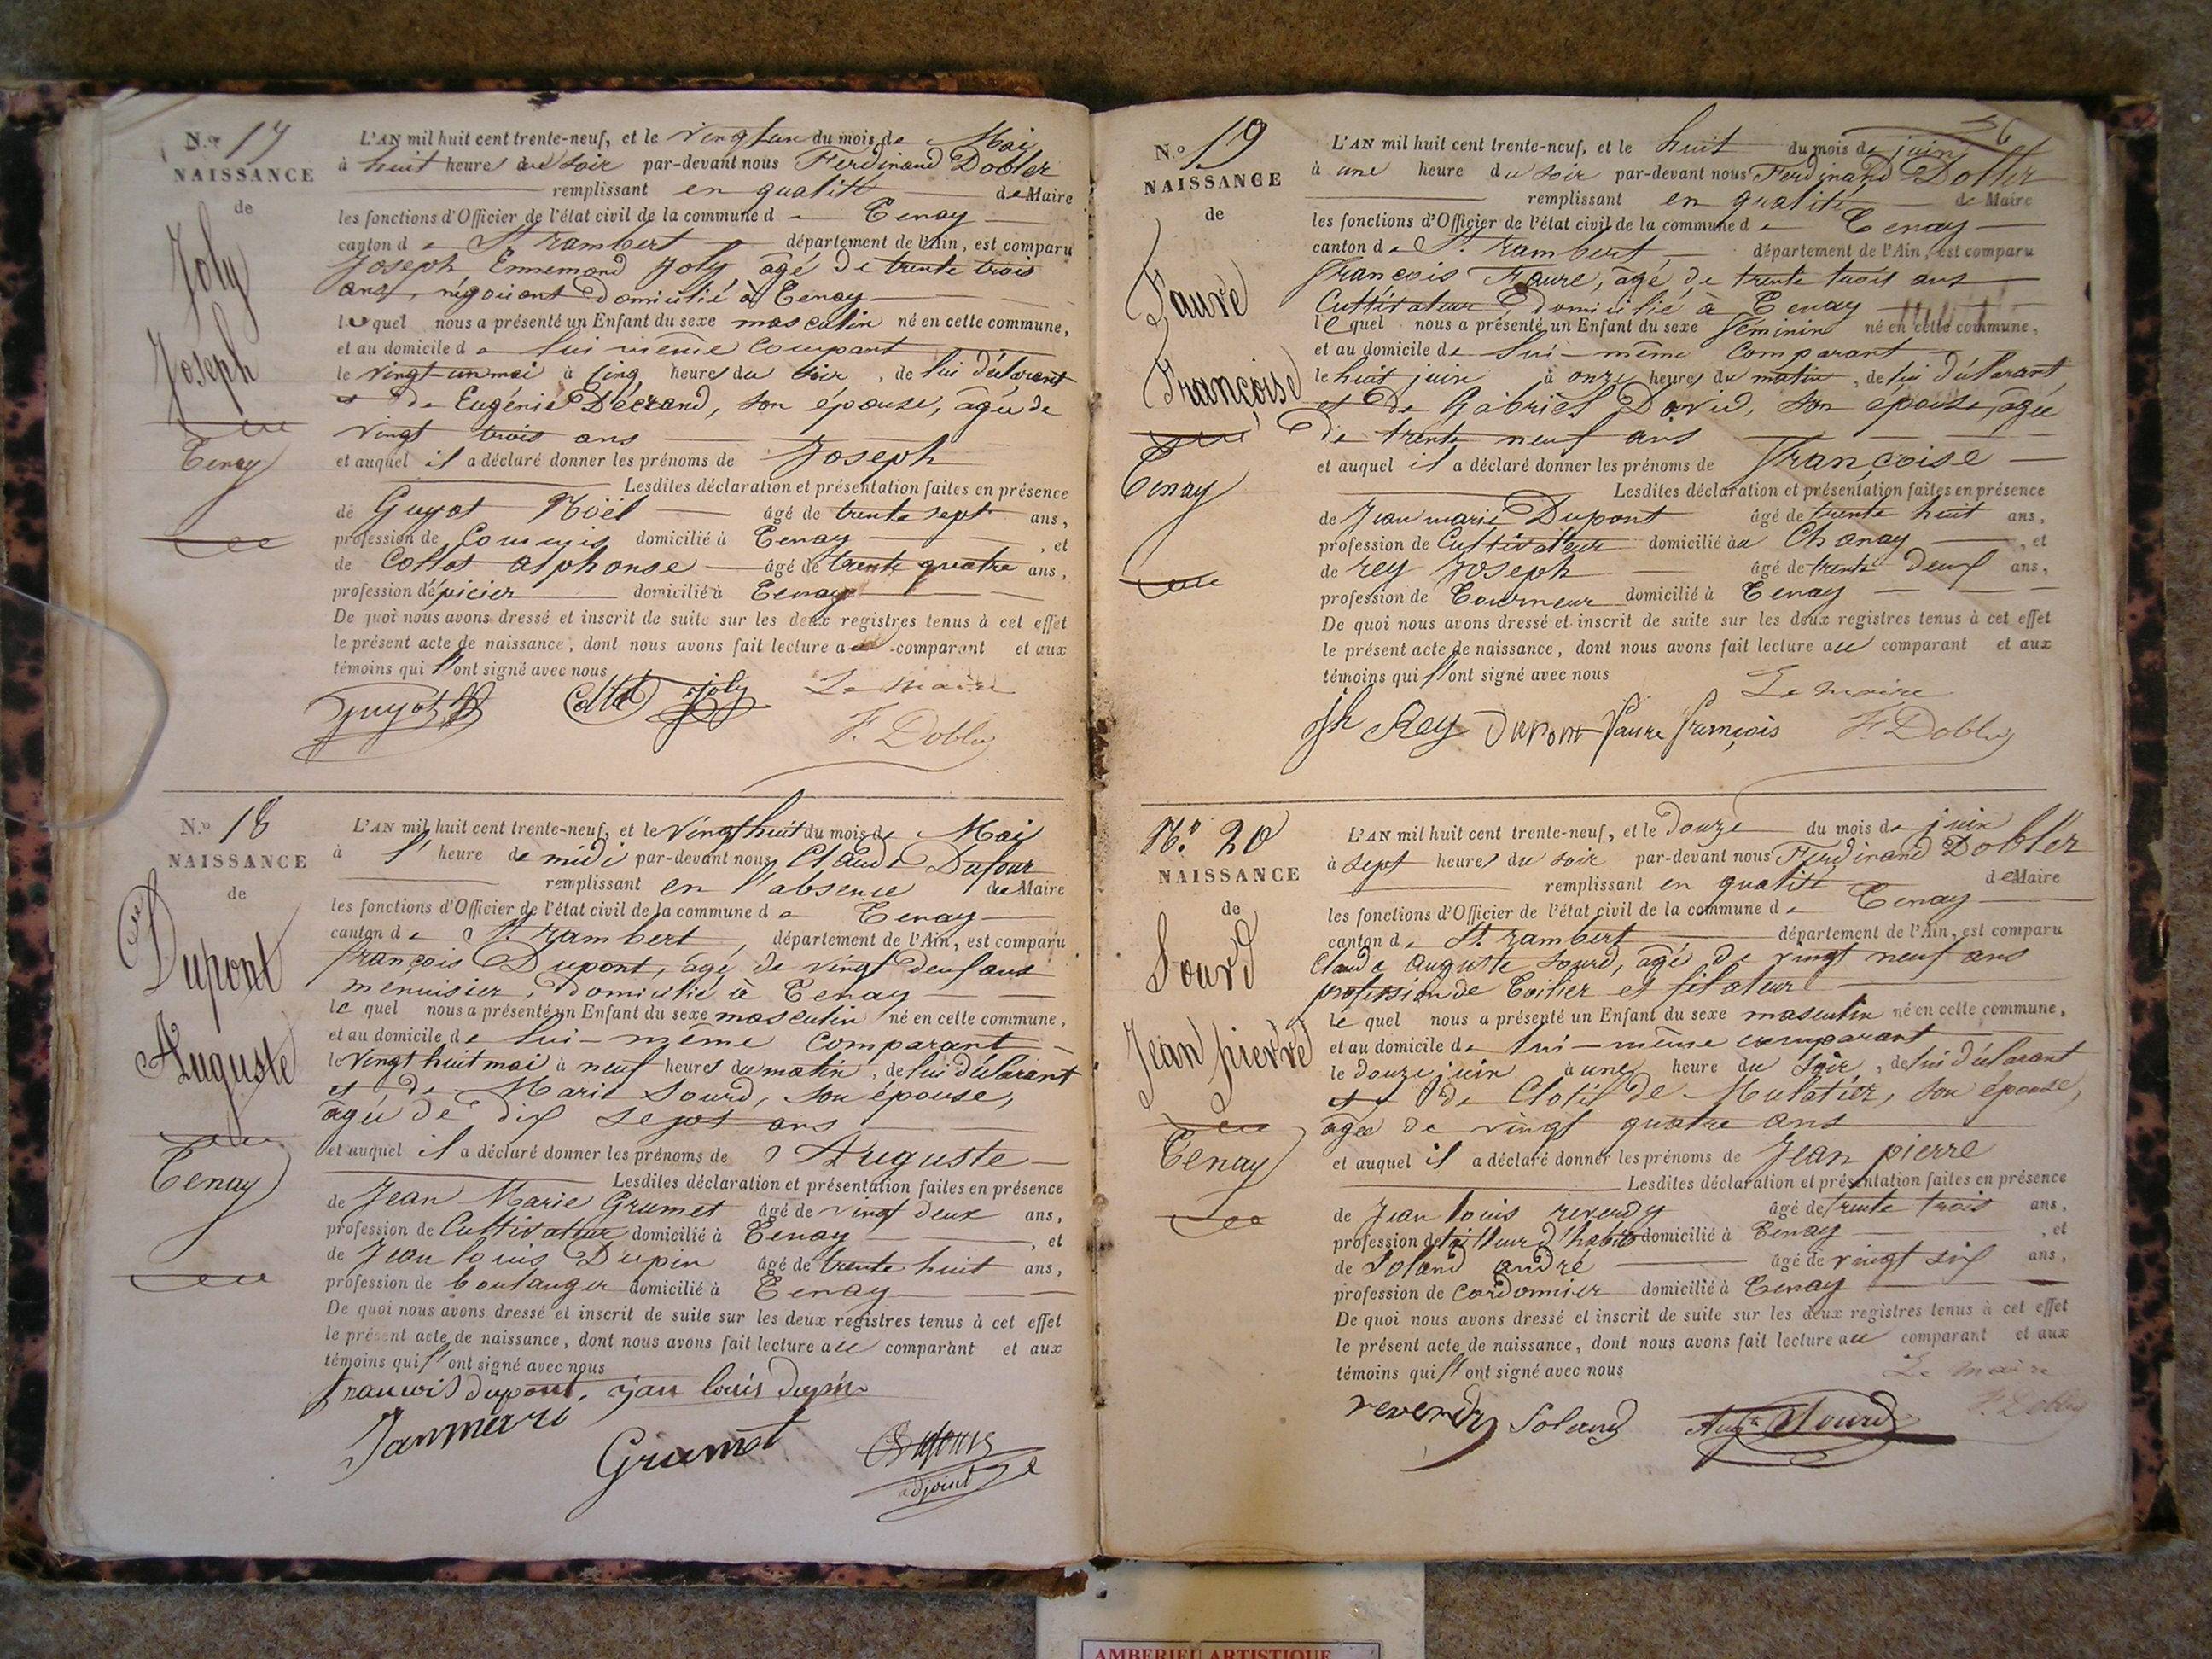 N.o 17
NAISSANCE
de
Joly
Joseph
Tenay
L'AN mil huit cent trente-neuf, et le vingt un du mois de Mai
à huit heures du soir par-devant nous Ferdinand Dobler
remplissant en qualité de Maire
les fonctions d'Officier de l'état civil de la commune de Tenay
canton de St. rambert département de l'Ain, est comparu
Joseph Ennemond Joly âgé de trente trois
ans, négociant domicilié à Tenay
lequel nous a présenté un Enfant du sexe masculin né en cette commune,
et au domicile de lui même Compart
le vingt-un mai à cinq heures du soir, de lui déclarant
et de Eugénie Décrand, son épouse, âgée de
vingt trois ans
et auquel il a déclaré donner les prénoms de Joseph
Lesdites déclaration et présentation faites en présence
de Guyot Noël âgé de trente sept ans,
profession de Commis domicilié à Tenay, et
de Collot alphonse âgé de trente quatre ans,
profession d'épicier domicilié à Tenay
De quoi nous avons dressé et inscrit de suite sur les deux registres tenus à cet effet
le présent acte de naissance, dont nous avons fait lecture au comparant et aux
témoins qui l'ont signé avec nous
Guyot Collot Joly Le maire
F. Dobler
N.o 18
NAISSANCE
de
Dupont
Auguste
Tenay
L'AN mil huit cent trente-neuf, et le vingt huit du mois de Mai
à l' heure de midi par-devant nous Claude Dufour
remplissant en l'absence du Maire
les fonctions d'Officier de l'état civil de la commune de Tenay
canton de St. rambert, département de l'Ain, est comparu
françois Dupont, âgé de vingt deux ans
menuisier, domicilié à Tenay
le quel nous a présenté un Enfant du sexe masculin né en cette commune,
et au domicile de lui-même comparant
le vingt huit mai à neuf heures du matin, de lui déclarant
et de Marie Sourd, son épouse,
âgée de dix sept ans
et auquel il a déclaré donner les prénoms de Auguste
Lesdites déclaration et présentation faites en présence
de Jean Marie Grumet âgé de vingt deux ans,
profession de Cultivateur domicilié à Tenay, et
de Jean louis Dupin âgé de trente huit ans,
profession de boulanger domicilié à Tenay
De quoi nous avons dressé et inscrit de suite sur les deux registres tenus à cet effet
le présent acte de naissance, dont nous avons fait lecture au comparant et aux
témoins qui l'ont signé avec nous
francois dupont, jan louis dupin
Janmari
Grumet Dufour
adjoint
56
N.o 19
NAISSANCE
de
Faure
Françoise
Tenay
L'AN mil huit cent trente-neuf, et le huit du mois de juin
à une heure du soir par-devant nous Ferdinand Dobler
remplissant en qualité de Maire
les fonctions d'Officier de l'état civil de la commune de Tenay
canton de St. rambert, département de l'Ain, est comparu
François Faure, âgé de trente trois ans
Cultivateur, domicilié à Tenay
le quel nous a présenté un Enfant du sexe féminin né en cette commune,
et au domicile de lui-même Comparant
le huit juin à onze heures du matin, de lui déclarant
et de Gabriel David, son épouse, âgée
de trente neuf ans
et auquel il a déclaré donner les prénoms de Françoise
Lesdites déclaration et présentation faites en présence
de Jean marie Dupont âgé de trente huit ans,
profession de Cultivateur domicilié au Chanay, et
de rey Joseph âgé de trente deux ans,
profession de Tourneur domicilié à Tenay
De quoi nous avons dressé et inscrit de suite sur les deux registres tenus à cet effet
le présent acte de naissance, dont nous avons fait lecture au comparant et aux
témoins qui l'ont signé avec nous
Le maire
Jh Rey Dupont faure françois F. Dobler
N.o 20
NAISSANCE
de
Sourd
Jean pierre
Tenay
L'AN mil huit cent trente-neuf, et le douze du mois de juin
à sept heures du soir par-devant nous Ferdinand Dobler
remplissant en qualité de Maire
les fonctions d'Officier de l'état civil de la commune de Tenay
canton de St. rambert département de l'Ain, est comparu
Claude Auguste Sourd, âgé de vingt neuf ans
profession de Toilier et filateur
le quel nous a présenté un Enfant du sexe masculin né en cette commune,
et au domicile de lui-même comparant
le douze juin à une heure du soir, de lui déclarant
et de Clotilde Mulatier, son épouse,
âgée de vingt quatre ans
et auquel il a déclaré donner les prénoms de Jean pierre
Lesdites déclaration et présentation faites en présence
de Jean louis reverdy âgé de trente trois ans,
profession de tailleur d'habits domicilié à Tenay, et
de Soland andré âgé de vingt six ans,
profession de Cordonnier domicilié à Tenay
De quoi nous avons dressé et inscrit de suite sur les deux registres tenus à cet effet
le présent acte de naissance, dont nous avons fait lecture au comparant et aux
témoins qui l'ont signé avec nous
Le maire
reverdy Soland Aug.te Sourd F. Dobler
AMBERIEU ARTISTIQUE